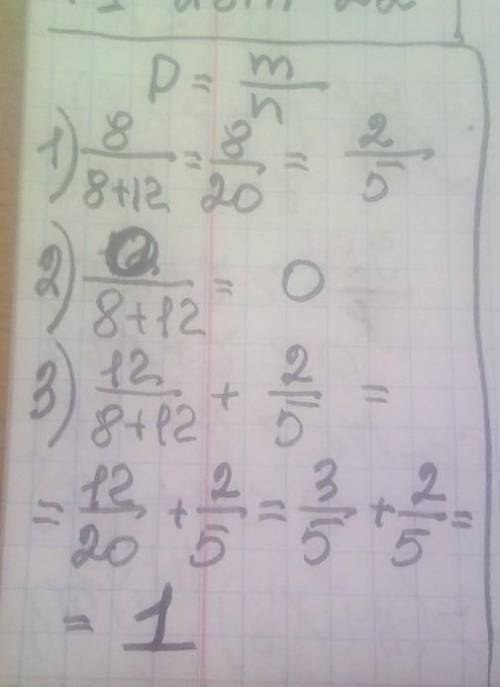 P = m/n
1) 8/(8+12) = 8/20 = 2/5
2) 0/(8+12) = 0
3) 12/(8+12) + 2/5 =
= 12/20 + 2/5 = 3/5 + 2/5 =
= 1